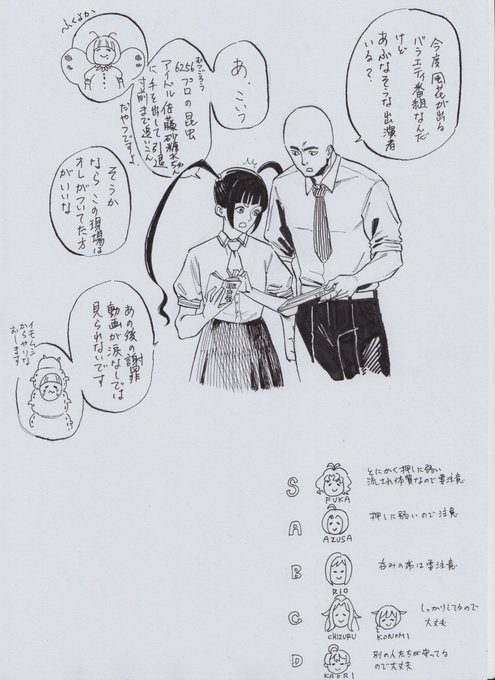 今度風花が出る
バラエティ番組なんだ
けど
あぶなそうな出演者
いる？
あ、こいつ
むつごろう
6256プロの昆虫
アイドル佐藤砂糖水ちゃん
に手を出して引退
寸前まで追いこん
だやつですよ
ふくよか
そうか
ならこの現場は
オレがついてた方
がいいな
あの後の謝罪
動画が涙なしでは
見られないです
イモムシ
からやりな
おします
S
FUKA
とにかく押しに弱い
流され体質なので要注意
A
AZUSA
押しに弱いので注意
B
RIO
呑みの席は要注意
C
CHIZURU
KONOMI
しっかりしてるので
大丈夫
D
KAORI
別の人たちが守ってる
ので大丈夫